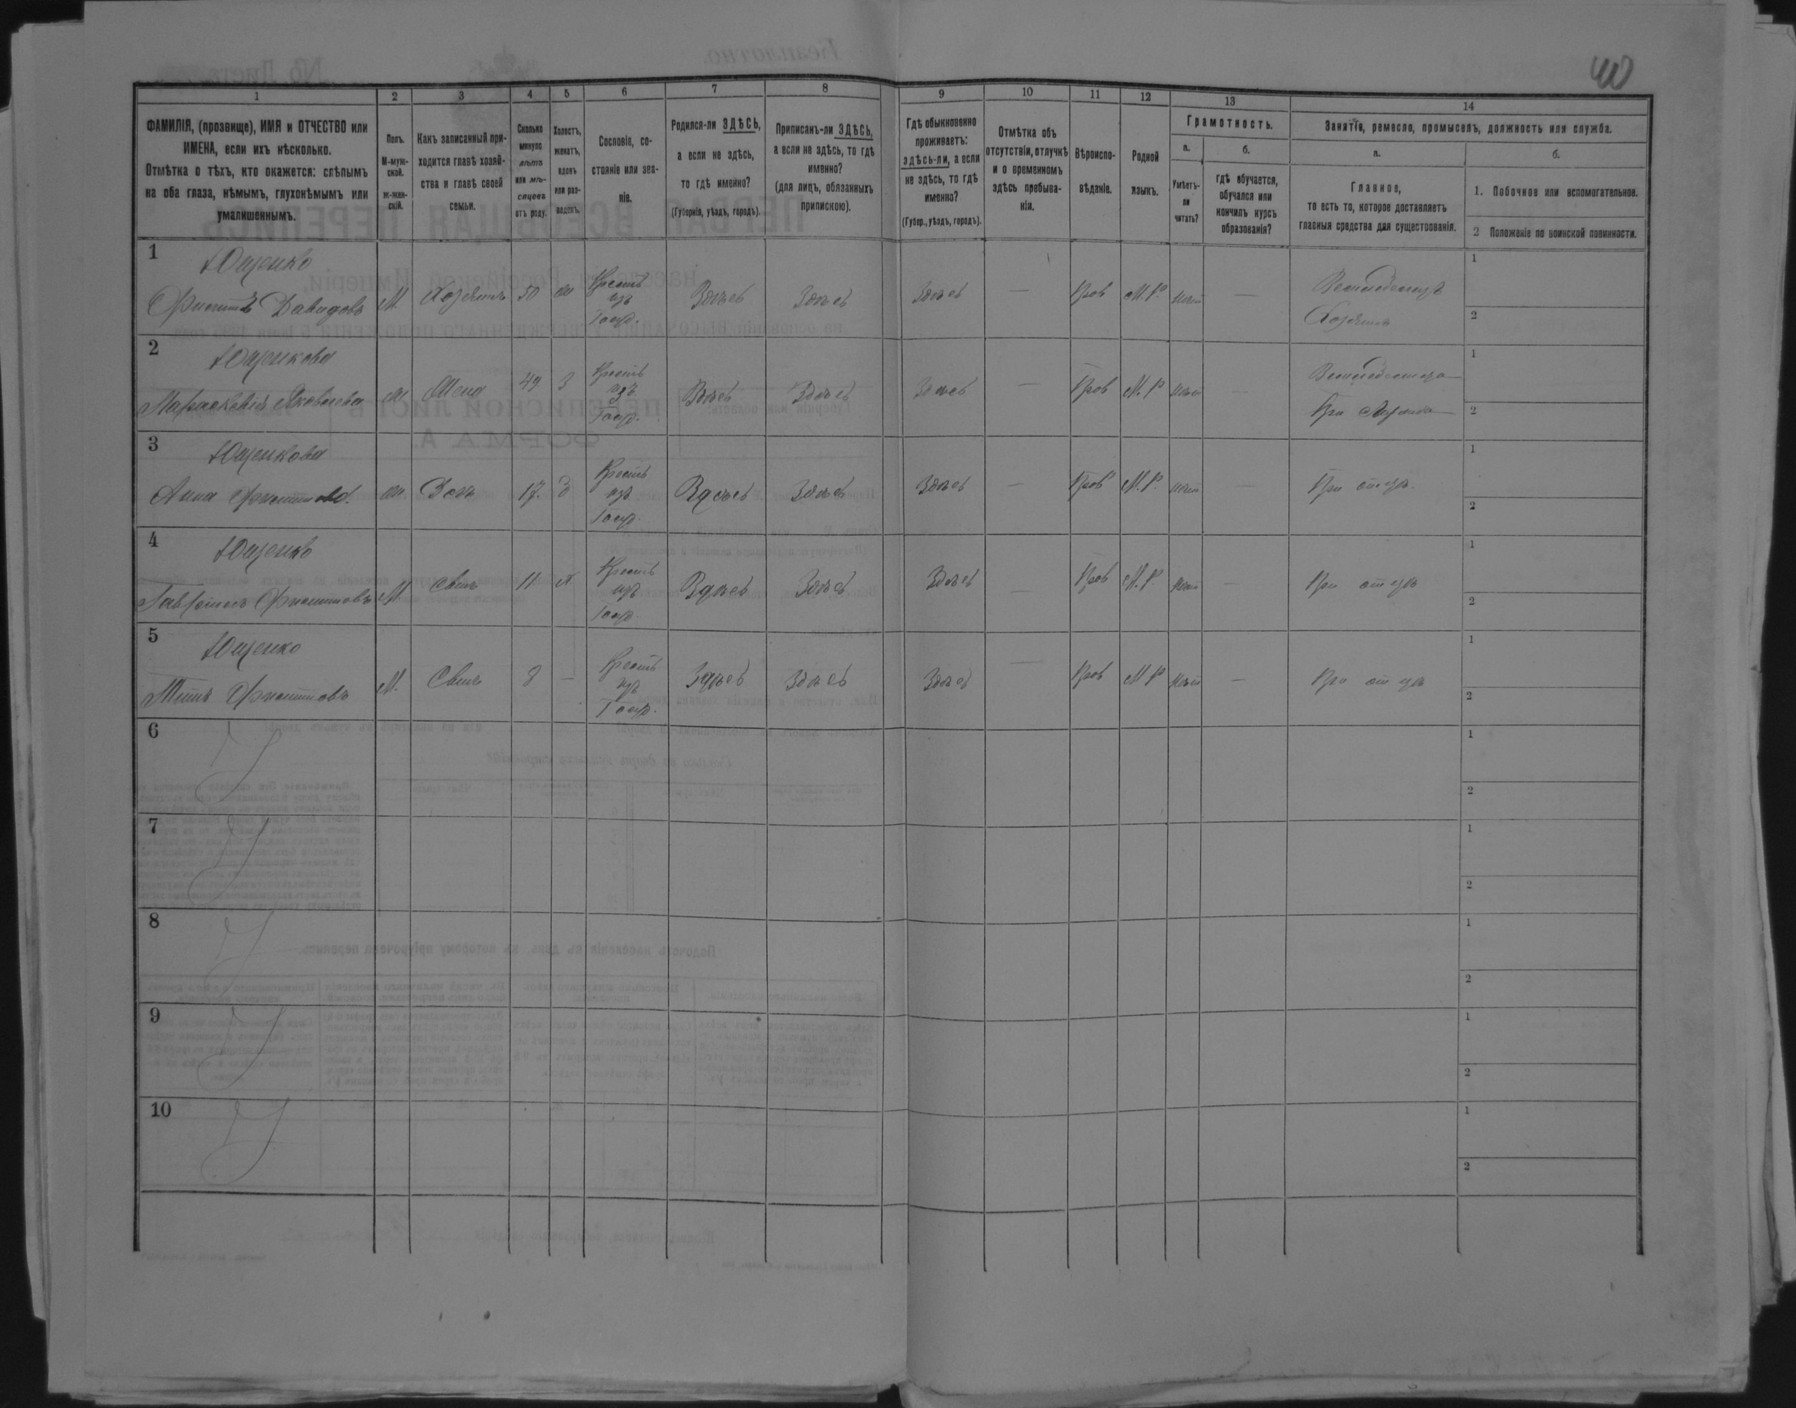 40
1 2 3 4 5 6 7 8 9 10 11 12 13 14
ФАМИЛІЯ, (прозвище), ИМЯ и ОТЧЕСТВО или
ИМЕНА, если ихъ нѣсколько.
Отмѣтка о тѣхъ, кто окажется: слѣпымъ
на оба глаза, нѣмымъ, глухонѣмымъ или
умалишеннымъ.
Полъ.
М-муж-
ской.
Ж-жен-
скій.
Какъ записанный при-
ходится главѣ хозяй-
ства и главѣ своей
семьи.
Сколько
минуло
лѣтъ
или мѣ-
сяцевъ
отъ роду.
Холостъ,
женатъ,
вдовъ
или раз-
веденъ.
Сословіе, со-
стояніе или зва-
ніе.
Родился-ли ЗДѢСЬ,
а если не здѣсь,
то гдѣ именно?
(Губернія, уѣздъ, городъ).
Приписанъ-ли ЗДѢСЬ,
а если не здѣсь, то гдѣ
именно?
(для лицъ, обязанныхъ
припискою).
Гдѣ обыкновенно
проживаетъ:
здѣсь-ли, а если
не здѣсь, то гдѣ
именно?
(Губер., уѣздъ, городъ).
Отмѣтка объ
отсутствіи, отлучкѣ
и о временномъ
здѣсь пребыва-
ніи.
Вѣроиспо-
вѣданіе.
Родной
языкъ.
Грамотность.
а.
Умѣетъ-
ли
читать?
б.
гдѣ обучается,
обучался или
кончилъ курсъ
образованія?
Занятіе, ремесло, промыселъ, должность или служба.
а.
Главное,
то есть то, которое доставляетъ
главныя средства для существованія.
б.
1. Побочное или вспомогательное.
2 Положеніе по воинской повинности.
1
Ющенко
Филиппъ Давидовъ М. Хозяинъ 50 ж Крестъ изъ Госуд. Здѣсь Здѣсь Здѣсь — Прав М.Р. нѣтъ — Земледѣлецъ
Хозяинъ
1
2
2
Ющенкова
Параскевія Яковлева ж Жена 49 З Крестъ изъ Госуд. Здѣсь Здѣсь Здѣсь — Прав М.Р нѣтъ — Земледѣлица
При мужѣ
1
2
3
Ющенкова
Анна Филиппова. ж. Дочь 17. д Крестъ изъ Госуд. Здѣсь Здѣсь Здѣсь — Прав М.Р. нѣтъ — При отцѣ
1
2
4
Ющенко
Гавріилъ Филипповъ М. Сынъ 11 х Крестъ изъ Госуд. Здѣсь Здѣсь Здѣсь — Прав М.Р. нѣтъ — При отцѣ
1
2
5
Ющенко
Титъ Филипповъ М. Сынъ 8 — Крестъ изъ Госуд. Здѣсь Здѣсь Здѣсь — Прав М Р нѣтъ — При отцѣ
1
2
6
1
2
7
1
2
8
1
2
9
1
2
10
1
2